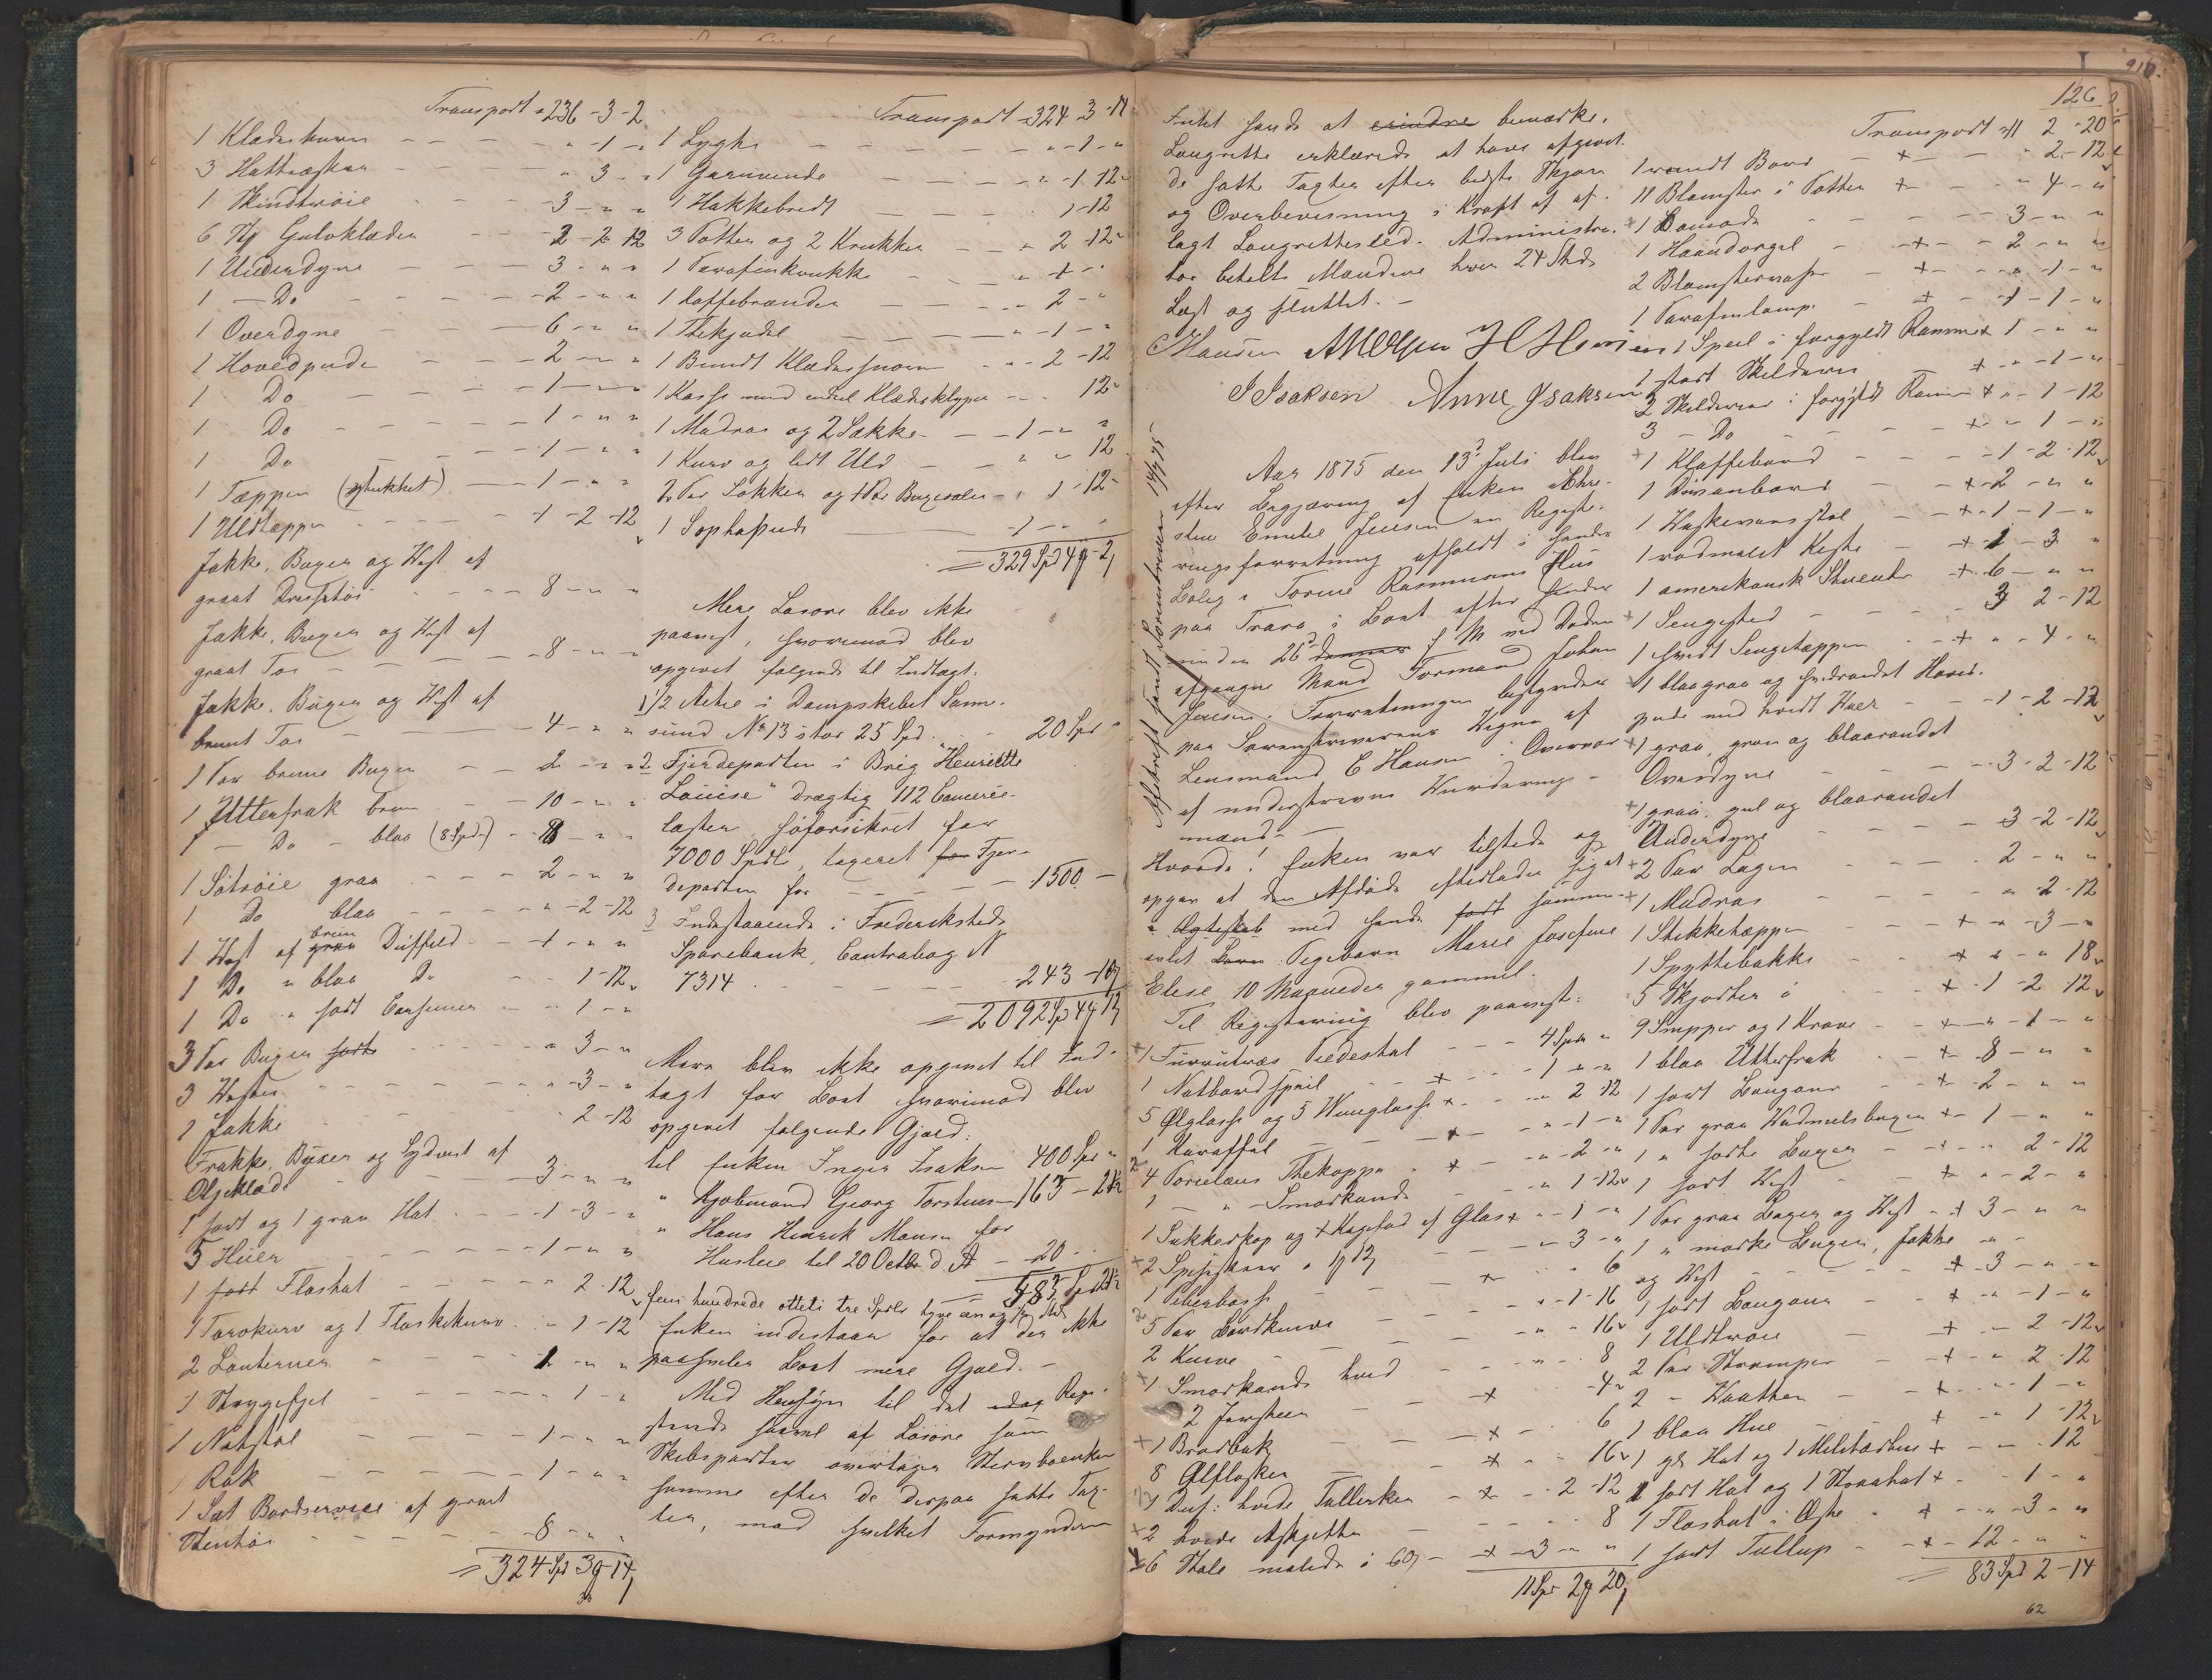 Transport 236 - 3 - 2
1 Klædeskurv - 1 -
3 Hattæsker 3 -
1 Skindtrøie 3 - " "
6 St Gulvklæder 2 - 2 - 12
1 Underdyne 3 - " "
1 - Do 2 - " "
1 Overdyne 6 - " "
1 Hovedpude 2 - " "
1 Do 1 - " "
1 Do 1 - " "
1 Do 1 - " "
1 Tæppe (stukket) 1 - " "
1 Uldtæppe 1 - 2 - 12
Jakke, Buxer og Vest af
graat 8 - " "
Jakke, Buxer og Vest af
graat Tøi 8 - " "
Jakke, Buxer og Vest af
brunt Tøi 4 - " "
1 Par brune Buxer 2 - " "
1 Ytterfrak brun 10 - " "
1 - Do - blaa (8 Spd) 8 - " "
1 Søtrøie graa 2 - " "
1 Do blaa " - 2 - 12
1 Vest af brun Düffeld 1 - " "
1 Do " blaa Do 1 - 12
1 Do " sort 1 - "
3 Par Buxer sorte " 3 - "
3 Vester " - 3 - "
1 Jakke 2 - 12
Frakke, Buxer og Sydvest af
Oljeklæde 3 - " "
1 sort og 1 graa Hat 1 - 3 - "
5 Huer 1 - " "
1 sort Floshat " 2 - 12
1 Torvkurv og 1 Flaskekurv " 1 - 12
2 Lanterner 1 - " "
1 Strygefjel " 1 - "
1 Natstol 1 - " "
1 Rok 1 - " "
1 Sæt Bordservice af graat
Stentøi 8 - " "
= 324 Spd 3 - 14
Transport 324 - 3 - 14
1 Lygte " - 1 - "
1 Garnvinde " - 1 - 12
1 Hakkebredt 1 - 12
3 Potter og 2 Krukker " 2 - 12
1 Parafinkrukke
1 Kaffebrænder " 2 - "
1 Thekjedel " - 1 - "
1 Bundt Klædessnore " 2 - 12
1 Kasse med endel Klædesklyper 12
1 Madras og 2 Sække 1 - " "
1 Kurv og lidt Uld " " 12
2 Par Sokker og 1 Par " 1 - 12
1 Sophapude 1 - " "
= 329 Spd 4 - 2
Mere Løsøre blev ikke
paavist, hvorimod blev
opgivet følgende til Indtægt.
1 1/2 Actie i Dampskibet Lamm-
sund No 13 stor 25 Spd 20 Spd "
2 Fjerdeparten i Brig "Henriette
Louise" drægtig 112 Commerce-
læster, søforsikret for
7000 Spdlr, taxeret for Fjer-
departen for 1500 -
3 Indestaaende i Frederiksteds
Sparebank, Contrabog N
7314 243 - 10
= 2092 Spd 4 12
Mere blev ikke opgivet til Ind-
tægt for Boet hvorimod blev
opgivet følgende Gjæld:
til Enken Inger Isaksen 400 Spd "
" Kjøbmand Georg Torstensen 163 - 2
" Hans Henrik Monsen for
Husleie til 20 Octbr d A 20 -
583 Spd
fem hundrede otteti tre Spdlr
Enken indestaar for at der ikke
paahviler Boet mere Gjæld. -
Med Hensyn til det idag Regi-
strerede saavel af Løsøre som
Skibsparten overtager Stervboenken
samme efter de derpaa satte Tax-
ter, mod hvilket Formynderen
126
Intet havde at erindre bemærke.
Laugrette erklærede at have afgivet
de satte Taxter efter bedste Skjøn
og Overbevisning i Kraft af af-
lagt Laugrettesed. Administra-
tor betalte Mændene hver 24 Sk.
Læst og sluttet. -
Hansen A Olsen H Hansen
I Isaksen Anne Isaksen
Afskrift sendt Sorenskriveren 14/7 75
Aar 1875 den 13d Juli blev
efter Begjæring af Enken Chri-
stine Emilie Jensen en Registe-
ringsforretning afholdt i hendes
Bolig i Torine Rasmussens Hus
paa Trara i Boet efter hendes
sin den 26d f M ved Døden
afgangne Mand Formand Johan
Jensen. Forretningen bestyredes
paa Sorenskriverens Vegne af
Lensmand C Hansen i Overvær
af undertegnede Vurderings-
mænd. -
Hvorda! Enken var tilstede og
opgav at den Afdøde efterlader sig
i Ægteskab med hende født sammen
avlet Barn Pigebarn Marie Josefine
Elise 10 Maaneder gammel.
Til Registrering blev paavist:
1 Furutræs Piedestal 4 Spd "
1 Natbordspeil 1 - "
5 Ølglasse og 5 Vinglasse 2 12
1 Karaffel " - 1 - "
4 Porcelæns Thekopper " - 2 - "
1 - " - Smørkande " 1 - 12
1 Sukkerkop og 1 Kagefad af Glas " - 1 - "
2 Spiseskeer a 1 12 " 3 - "
1 Peberbøsse " 6
5 Par Bordknive " - 1 - 16
2 Knive " " 16
1 Smørkande hvid 8
2 4
1 Brødbak 6
8 Ølflasker 16
1 Dus: hvide Tallerker 2 - 12
2 hvide Asjetter 8
6 Stole malede i 60 3 " "
11 Spd 2 20
Transport 11 2 - 20
1 rundt Bord " 2 - 12
11 Blomster i Potter " 4 - "
1 Comode 3 - " "
1 Haandorgel 2 - " "
2 Blomstervaser " - 1 - "
1 Parafinlampe 1 - 1 - "
1 Speil i forgyldt Ramme 1 - " "
1 stort Skilderi " - 1 - "
2 Skilderier i forgyldt Ramme " - 1 - 12
3 - Do " 1 - "
1 Klaffebord 1 - 2 - 12
1 Divanbord 2 - " "
1 1 - 1 - "
1 rødmalet Kiste 1 - 3 "
1 amerikansk Stueuhr 6 - " "
1 Sengested 3 2 - 12
1 hvidt Sengetæppe " - 4 - "
1 blaagraa og hvidrandet Hoved-
pude med hvidt Vaar 1 - 2 - 12
1 graa, grøn og blaarandet
Overdyne 3 - 2 - 12
1 graa, gul og blaarandet
Underdyne 3 - 2 - 12
2 Par Lagen 2 - " "
1 Madras " 2 - 12
1 Stikketæppe " - 3 - "
1 Spyttebakke " - " 18
5 Skjorter 1 - 2 12
9 Snipper og 1 Krave " - 1 - "
1 blaa Ytterfrak 8 - " "
1 sort Bonjour 2 - " "
1 Par graa Vadmelsbuxer 1 - " "
1 " sorte Buxer " 2 - 12
1 sort Vest " - 2 - "
1 Par graa Buxer og Vest 3 - " "
1 " mørke Buxer, Jakke
og Vest 3 - " "
1 sort Bonjour " - 1 - "
1 Uldtrøie 2 - 12
2 Par Strømper " 2 - 12
2 - Vaatter 1 - "
1 blaa Hue " 1 - 12
1 gl Hat og 1 Militærhue 12
1 sort Hat og 1 Straahat 1 - "
1 Floshat i Æske " - 3 - "
1 sort Tullup 12 - " "
= 83 Spd 2 - 14
62